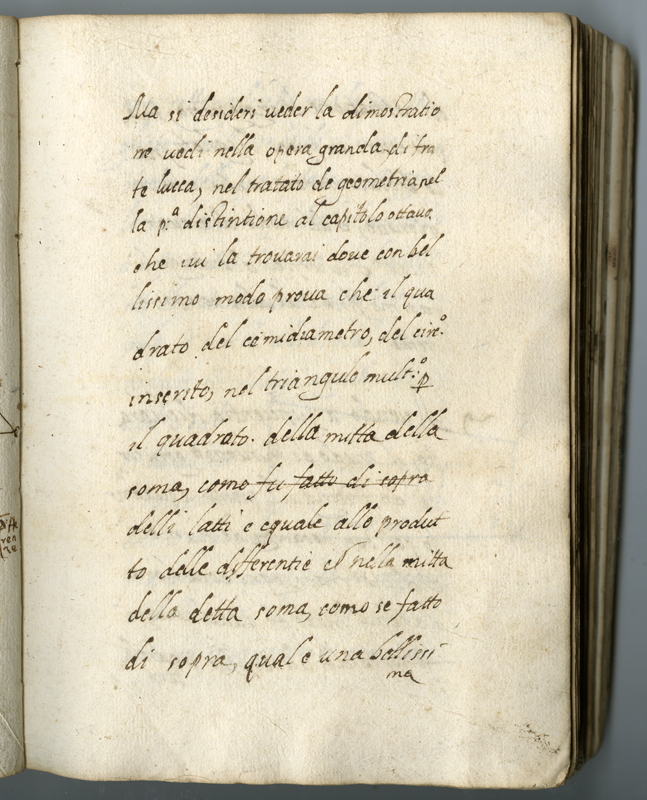 Ma si desideri veder la dimostratio
ne vedi nella opera granda di fra
te lucca, nel tratato de geometria nel
la p:ª distintione al capitolo ottavo,
che ivi la trovarai dove con bel
lissimo modo prova che il qua
drato del cemidiametro, del circ:º
inserito, nel triangulo mult:º p
il quadrato. della mitta della
soma, como fu fatto di sopra
delli latti e equale allo produt
to delle differentie et nella mitta
della detta soma, como se fatto
di sopra, qual e una bellissi
ma